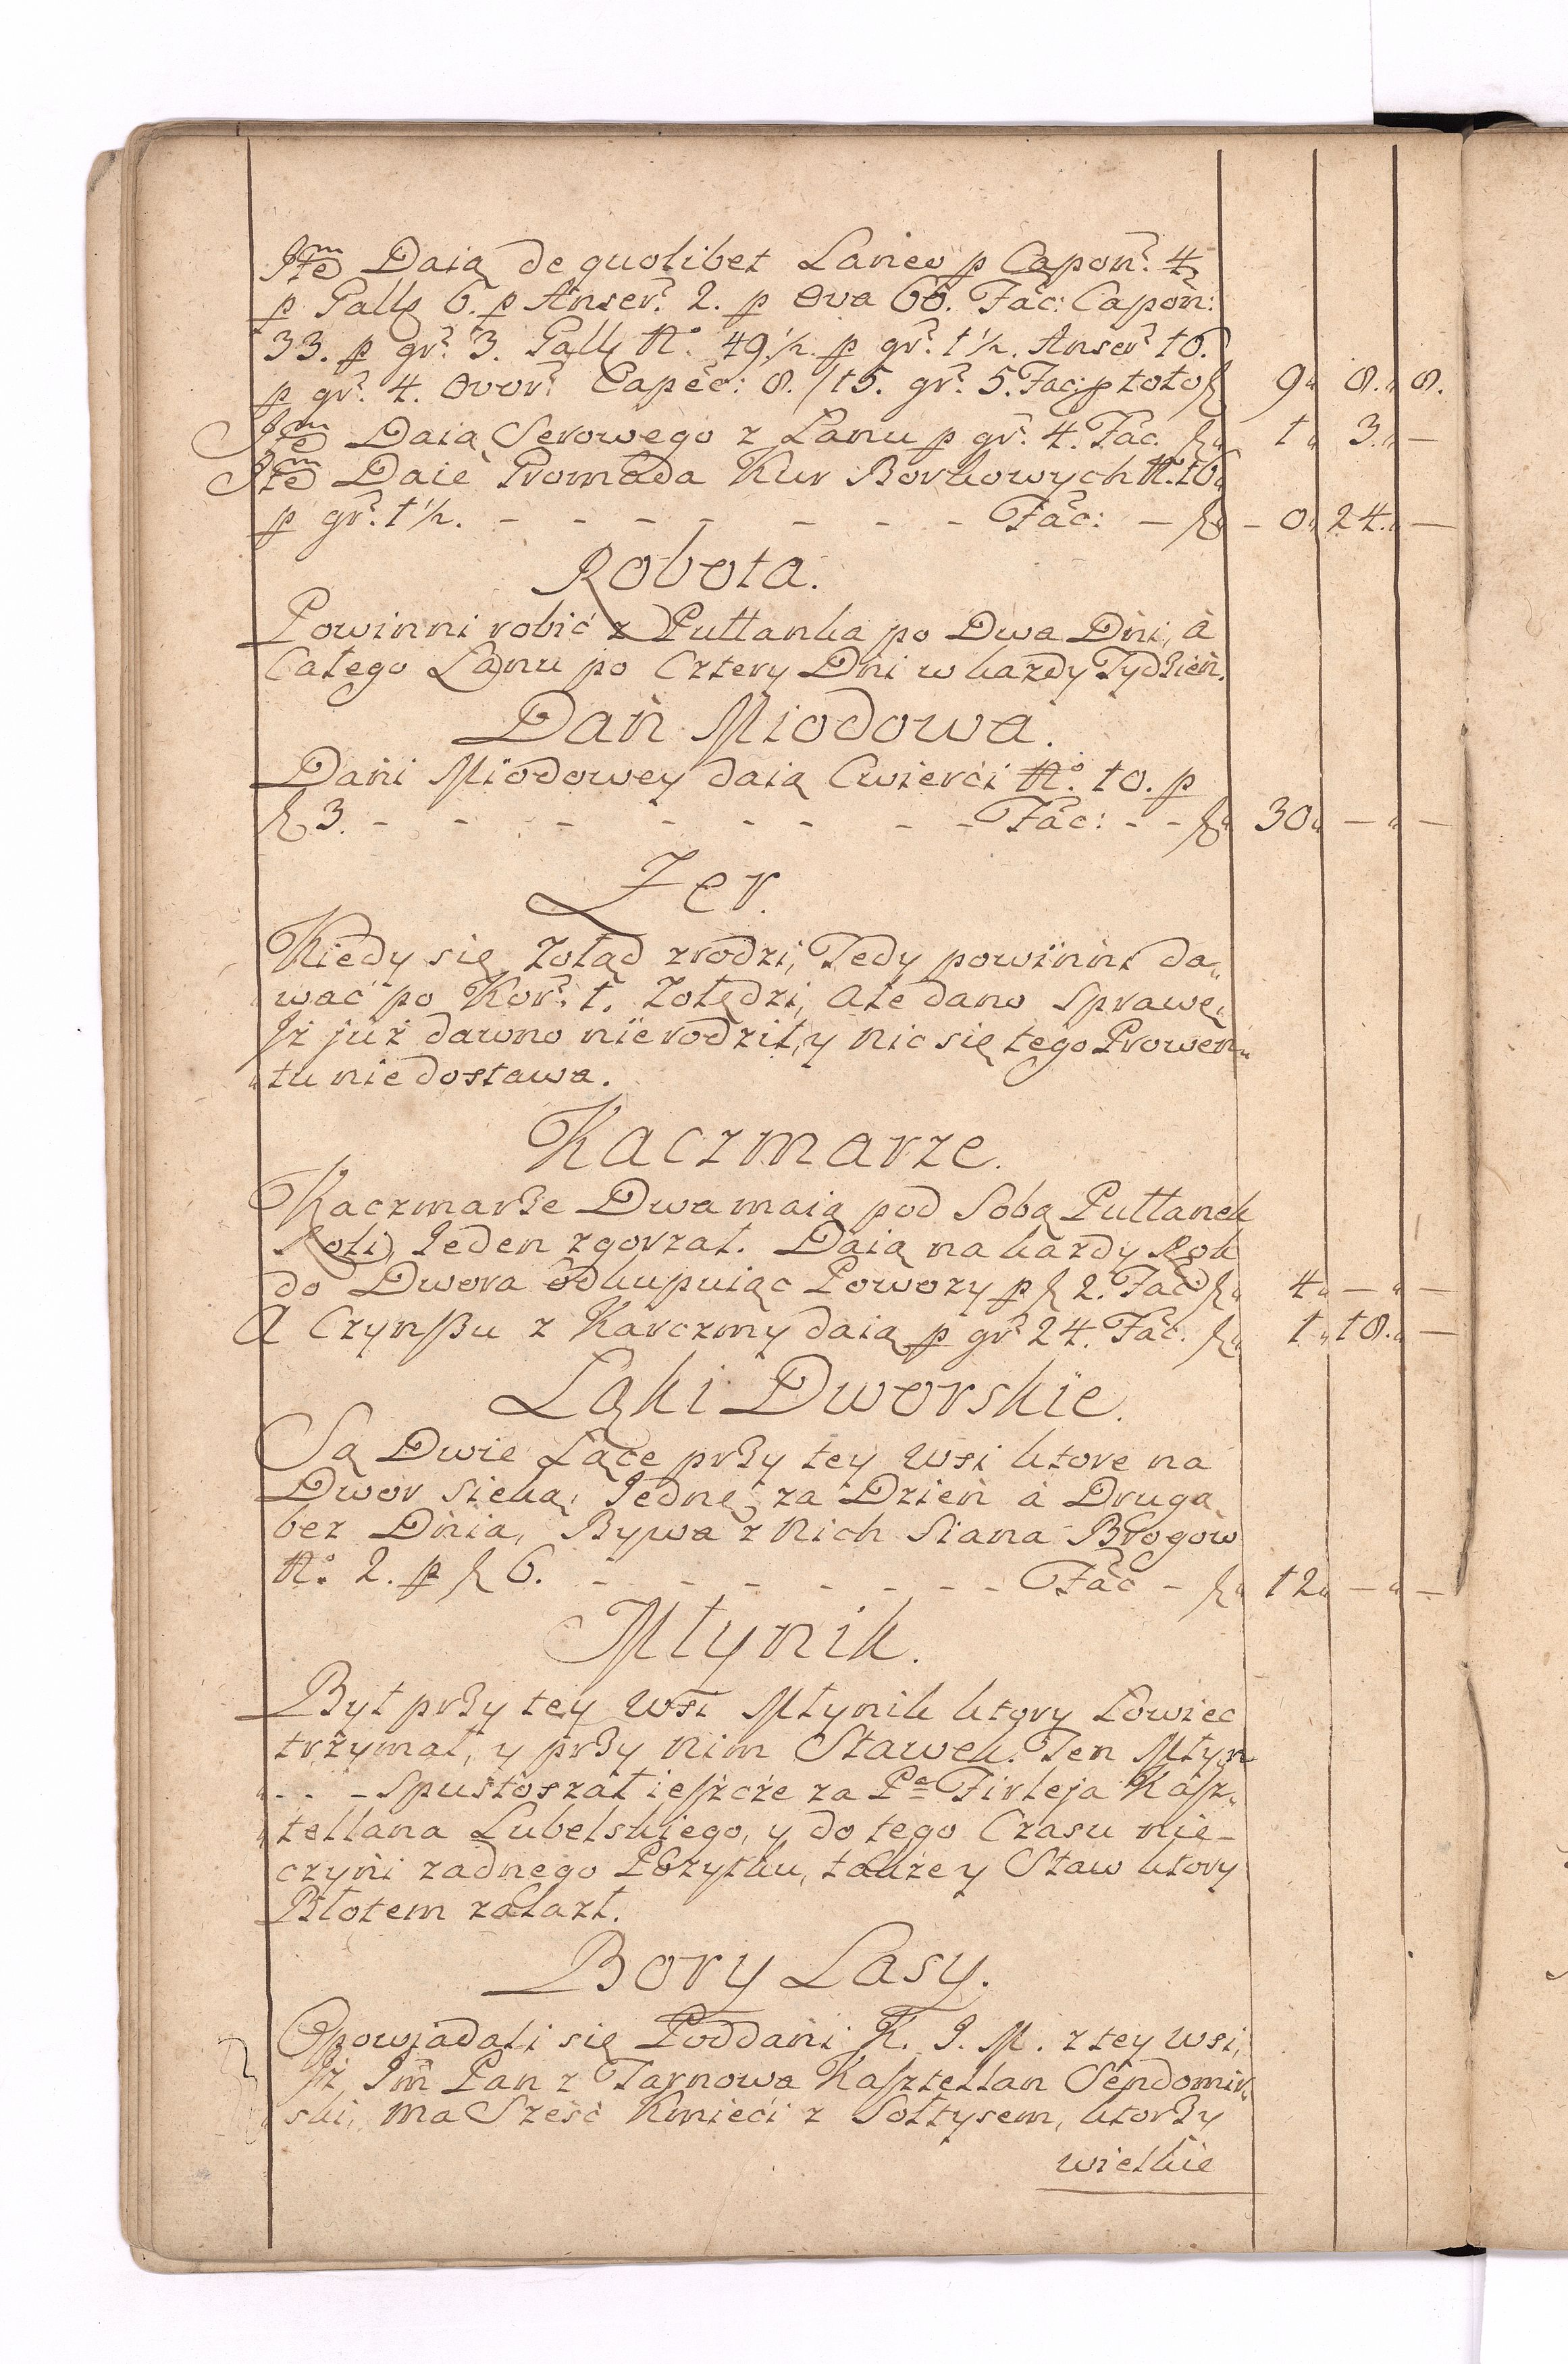 Jtem Daią de quolibet Laneo p Capon: 4.
p Gall. 6. p Anser: 2. p Ova 60. Fac: Capon:
33. p gr: 3. Gall. No. 49 1/2. p gr: 1 1/2. Anser: 16.
p gr: 4. Ovor: Capec: 8./15. gr: 5. Fac: p toto f 9 „ 8. „ 8.
Jtem Daią Serowego z Łanu p gr: 4. Fac. f „ 1 „ 3. „ —
Jtem Daie Gromada Kur Borkowych No. 16.
p gr: 1 1/2. - - - - - - - Fac: — f — 0 „ 24. „ —
Robota.
Powinni robić z Pułłanka po Dwa Dni, a
Całego Łanu po Cztery Dni w każdy Tydzień.
Dań Miodowa.
Dani Miodowey daią Cwierći No. 10. p
f 3. - - - - - - - - Fac: - - f „ 30 „ — „ —
Żer.
Kiedy się Żołąd zrodzi, Tedy powinni da„
wać po Kor: 1. Żołędzi, Ale dano Sprawę,
Jż już dawno nie rodził, y nic się tego Prowen„
„tu nie dostawa.
Kaczmarze.
Kaczmarze Dwa maią pod Sobą Pułłanek
Roli, Jeden zgorzał. Daią na każdy Rok
do Dwora odkupuiąc Powozy p f 2. Fac: f „ 4 „ — „ —
A Czynszu z Karczmy daią p gr: 24. Fac. f „ 1 „ 18. „ —
Łąki Dworskie.
Są Dwie Łące przy tey Wsi ktore na
Dwor Sieką, Jednę za Dzień a Drugą
bez Dnia, Bywa z nich Siana Brogow
No. 2. p f 6. - - - - - - - Fac - f „ 12 „ — „ —
Młynik.
Był przy tey Wsi Młynik ktory Łowiec
trzymał, y przy nim Stawek. Ten Młyn
„ - - - Spustoszał ieszcze za Pa Firleja Kasz„
„tellana Lubelskiego, y do tego Czasu nie-
czyni zadnego Pożytku, także y Staw ktory
Błotem zalazł.
Bory Lasy.
Opowiadali się Poddani K. J. M. z tey wsi,
Jż, Jm Pan z Tarnowa Kasztellan Sendomir„
„ski, ma Sześć Kmieći z Sołtysem, ktorzy
wielkie